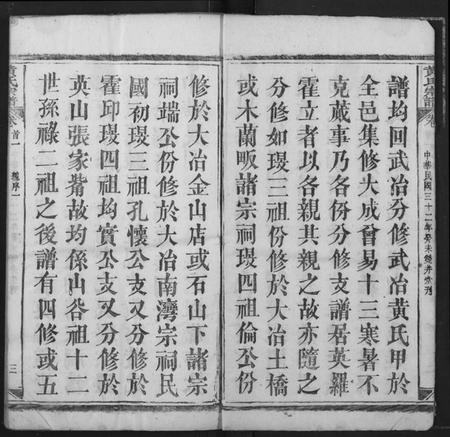 中華民國三十二年癸未
譜均回武冶分修武冶黃氏甲於
全邑集修大成曾易十三寒暑不
克蕆事乃各份分修支譜居英羅
霍立者以各親其親之故亦隨之
分修如瑗三祖份修於大冶土橋
或木蘭畈諸宗祠瑗四祖倫公份
修於大冶金山店或石山下諸宗
祠端公份修於大冶南灣宗祠民
國初瑗三祖孔懷公支又分修於
霍邱瑗四祖均實公支又分修於
英山張家嘴故均係山谷祖十二
世孫祿二祖之後譜有四修或五
黃氏宗譜
卷首一
總序一
三